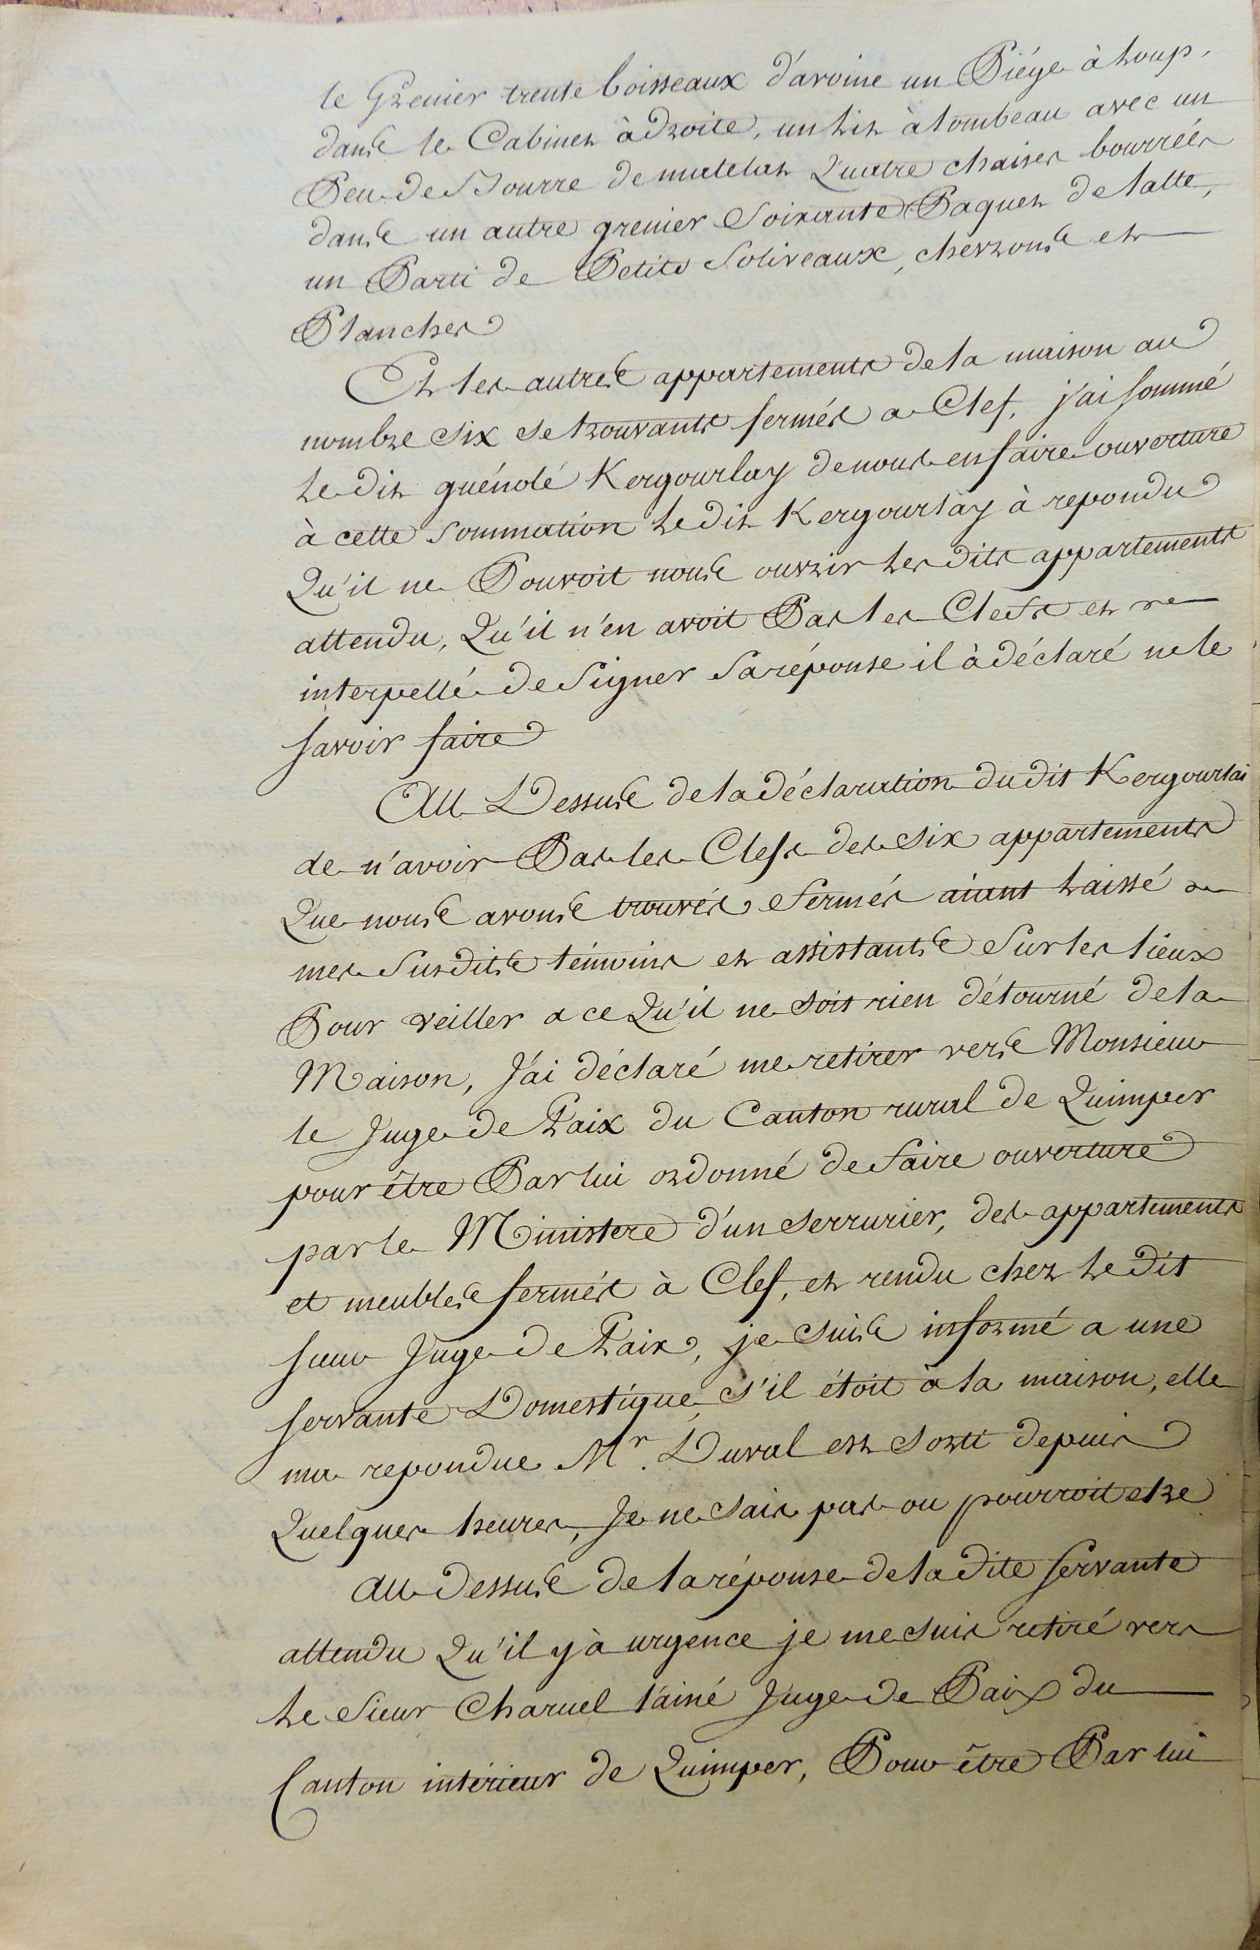 le Grenier trente boisseaux d'avoine un Piége à Loup,
dans le Cabinet à Droite, un Lit à tombeau avec un
Peu de Bourre de matelat Quatre chaises bourrées
dans un autre grenier Soixante Paquet de latte,
un Parti de Petits Soliveaux, chevrons et
Planches
Et les autres appartements de la maison au
nombre Six se trouvants fermés a Clef, j'ai Sommé
Le dit guénolé Kergourlay de nous en faire ouverture
à cette Sommation Le dit Kergourlay à repondu
Qu'il ne Pouvoit nous ouvrir Les dits appartements
attendu, Qu'il n'en avoit Pas les Clefs et
interpellé de Signer Sa réponse il à déclaré ne le
Savoir faire
Au Dessus de la déclaration du dit Kergourlai
de n'avoir Pas les Clefs des Six appartements
Que nous avons trouvés fermés aiant Laissé
mes Susdits témoins et assistants Sur les lieux
Pour veiller a ce Qu'il ne Soit rien détourné de la
Maison, J'ai déclaré me retirer vers Monsieur
le Juge de Paix du Canton rural de Quimper
pour être Par lui ordonné de faire ouverture
par le Ministere d'un Serrurier, des appartements
et meubles fermés à Clef, et rendu chez Le dit
Sieur Juge de Paix, je Suis informé a une
Servante Domestique, S'il étoit à la maison, elle
ma repondue Mr. Duval est Sorti depuis
Quelques heures, Je ne Sais pas ou pourroit etre
Au Dessus de la réponse de la Dite Servante
attendu Qu'il y à urgence je me Suis retiré vers
Le Sieur Charuel l'ainé Juge de Paix du
Canton intérieur de Quimper, Pour être Par lui